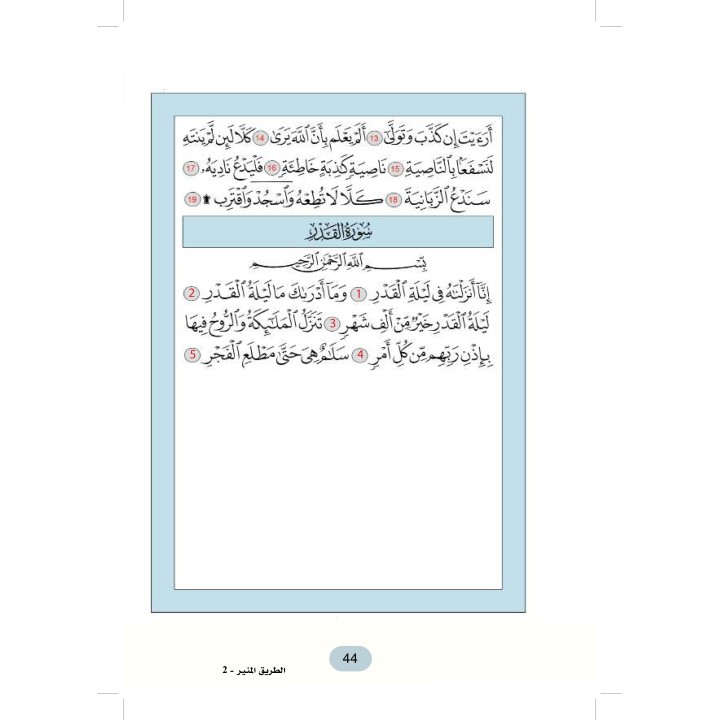 أَرَءَيْتَ إِن كَذَّبَ وَتَوَلَّىٰٓ 13 أَلَمْ يَعْلَم بِأَنَّ ٱللَّهَ يَرَىٰ 14 كَلَّا لَئِن لَّمْ يَنتَهِ
لَنَسْفَعًۢا بِٱلنَّاصِيَةِ 15 نَاصِيَةٍ كَٰذِبَةٍ خَاطِئَةٍ 16 فَلْيَدْعُ نَادِيَهُۥ 17
سَنَدْعُ ٱلزَّبَانِيَةَ 18 كَلَّا لَا تُطِعْهُ وَٱسْجُدْ وَٱقْتَرِب ۩ 19
سُورَةُ ٱلْقَدْرِ
بِسْمِ ٱللَّهِ ٱلرَّحْمَٰنِ ٱلرَّحِيمِ
إِنَّآ أَنزَلْنَٰهُ فِى لَيْلَةِ ٱلْقَدْرِ 1 وَمَآ أَدْرَىٰكَ مَا لَيْلَةُ ٱلْقَدْرِ 2
لَيْلَةُ ٱلْقَدْرِ خَيْرٌ مِّنْ أَلْفِ شَهْرٍ 3 تَنَزَّلُ ٱلْمَلَٰٓئِكَةُ وَٱلرُّوحُ فِيهَا
بِإِذْنِ رَبِّهِم مِّن كُلِّ أَمْرٍ 4 سَلَٰمٌ هِىَ حَتَّىٰ مَطْلَعِ ٱلْفَجْرِ 5
44
الطريق المنير - 2